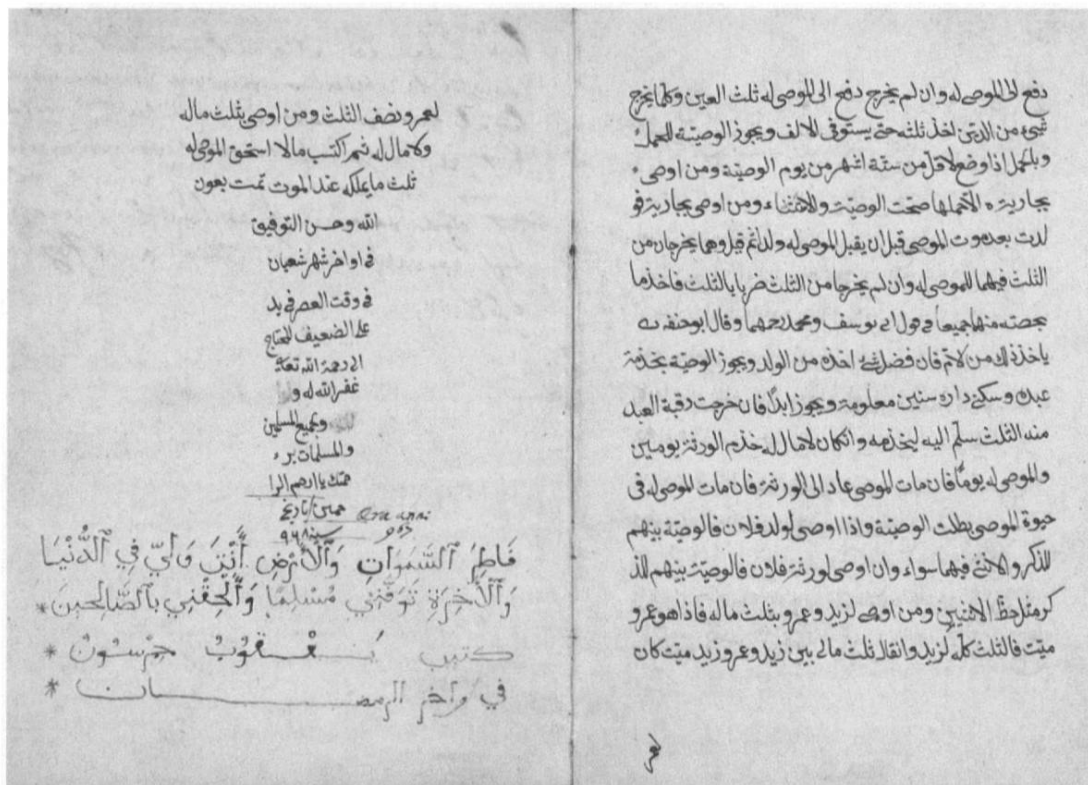 دفع الى الموصى له وان لم يخرج دفع الى الموصى له ثلث العين وكلما يخرج
شيء من الدين اخذ ثلثه حتى يستوفى الالف ويجوز الوصية للحمل
وبالحمل اذا وضع لاقل من ستة اشهر من يوم الوصية ومن اوصى
بجارية الا حملها صحت الوصية والاستثناء ومن اوصى بجارية فو
لدت بعد موت الموصى قبل ان يقبل الموصى له ولدا ثم قبل وهما يخرجان من
الثلث فهما للموصى له وان لم يخرجا من الثلث ضربا بالثلث فاخذ ما
بحصته منهما جميعا في قول ابي يوسف ومحمد رحمهما وقال ابو حنفه
ياخذ ذلك من الام فان فضل شئ اخذه من الولد ويجوز الوصية بخدمة
عبده وسكنى داره سنين معلومة ويجوز ابدا فان خرجت رقبة العبد
منه الثلث سلم اليه ليخدمه وان كان لا مال له خدم الورثة يومين
والموصى له يوما فان مات الموصى عاد الى الورثة فان مات الموصى له فى
حيوة الموصى بطلت الوصية واذا اوصى لولد فلان فالوصية بينهم
للذكر والانثى فيهما سواء وان اوصى لورثة فلان فالوصية بينهم للذ
كر مثل حظ الانثيين ومن اوصى لزيد وعمرو بثلث ماله فاذا هو عمرو
ميت فالثلث كله لزيد وان قال ثلث مالى بين زيد وعمرو وزيد ميت كان
لعمرو نصف الثلث ومن اوصى بثلث ماله
ولا مال له ثم اكتسب مالا استحق الموصى له
ثلث ما يملكه عند الموت تمت بعون
الله وحسن التوفيق
فى اواخر شهر شعبان
فى وقت العصر فى يد
على الضعيف المحتاج
الى رحمة الله تعالى
غفر الله له ولوا
لديه وبجميع المسلمين
والمسلمات بر
حمتك يا ارحم الرا
حمين تاريخ
سنة ٩٦٨
فَاطِرَ ٱلسَّمَوَاتِ وَٱلْأَرْضِ أَنْتَ وَلِيّ فِي ٱلدُّنْيَا
وَٱلْأَخِرَةِ تَوَفَّنِي مُسْلِمًا وَأَلْحِقْنِي بِٱلصَّالِحِينَ *
كتبه يعقوب *
في واخر الرمضان *